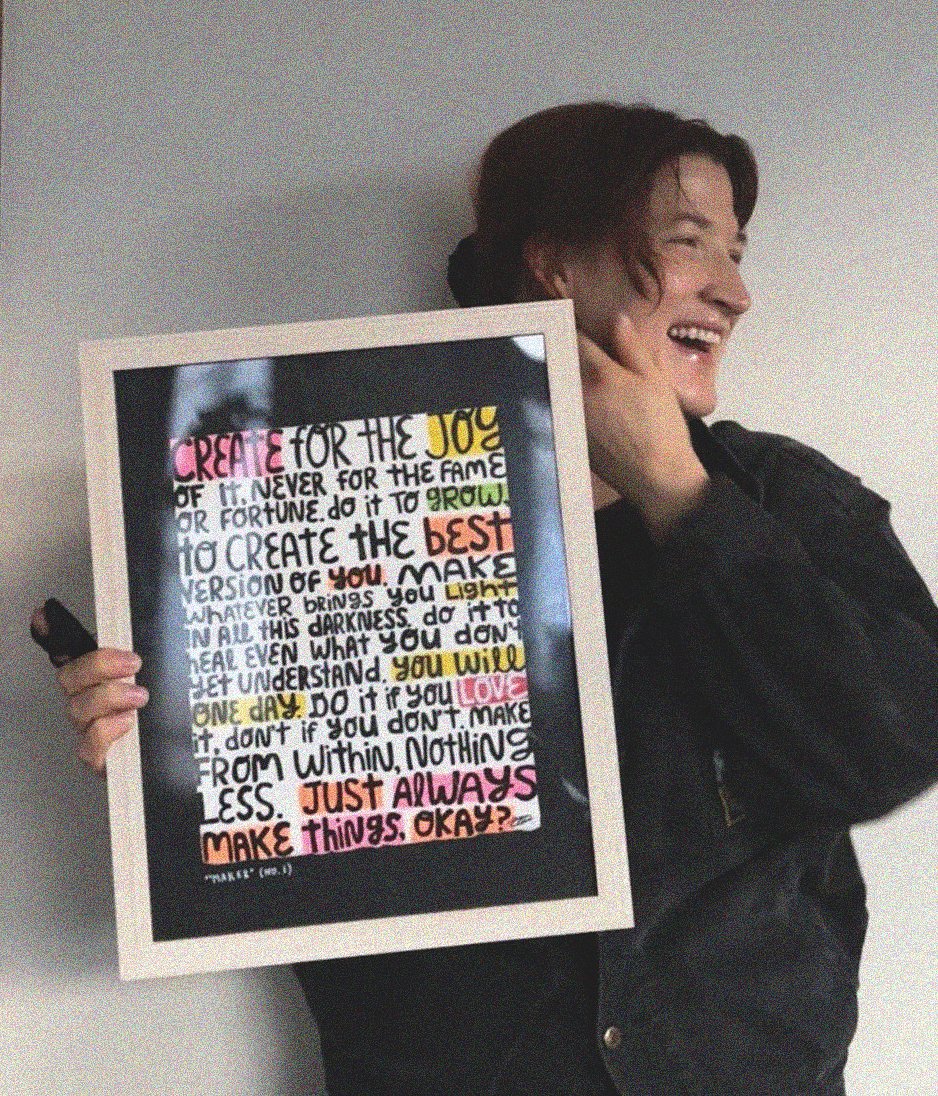 CREATE FOR THE JOY
OF IT. NEVER FOR THE FAME
OR FORTUNE. do iT TO GROW.
TO CREATE THE bEST
VERSiON OF YOU. MAKE
WHATEVER bRiNGS YOU LigHT
iN All THiS dARKNESS. do iT TO
hEAL EVEN WHAT YOU dON'T
YET UNdERSTANd. YOU Will
ONE dAY. DO iT if YOU LOVE
iT. dON'T if YOU dON'T. MAKE
FROM WiThiN. NOTHiNG
LESS. JUST AlWAYS
MAKE ThiNgS. OKAY?
"MAKE" (NO. 1)